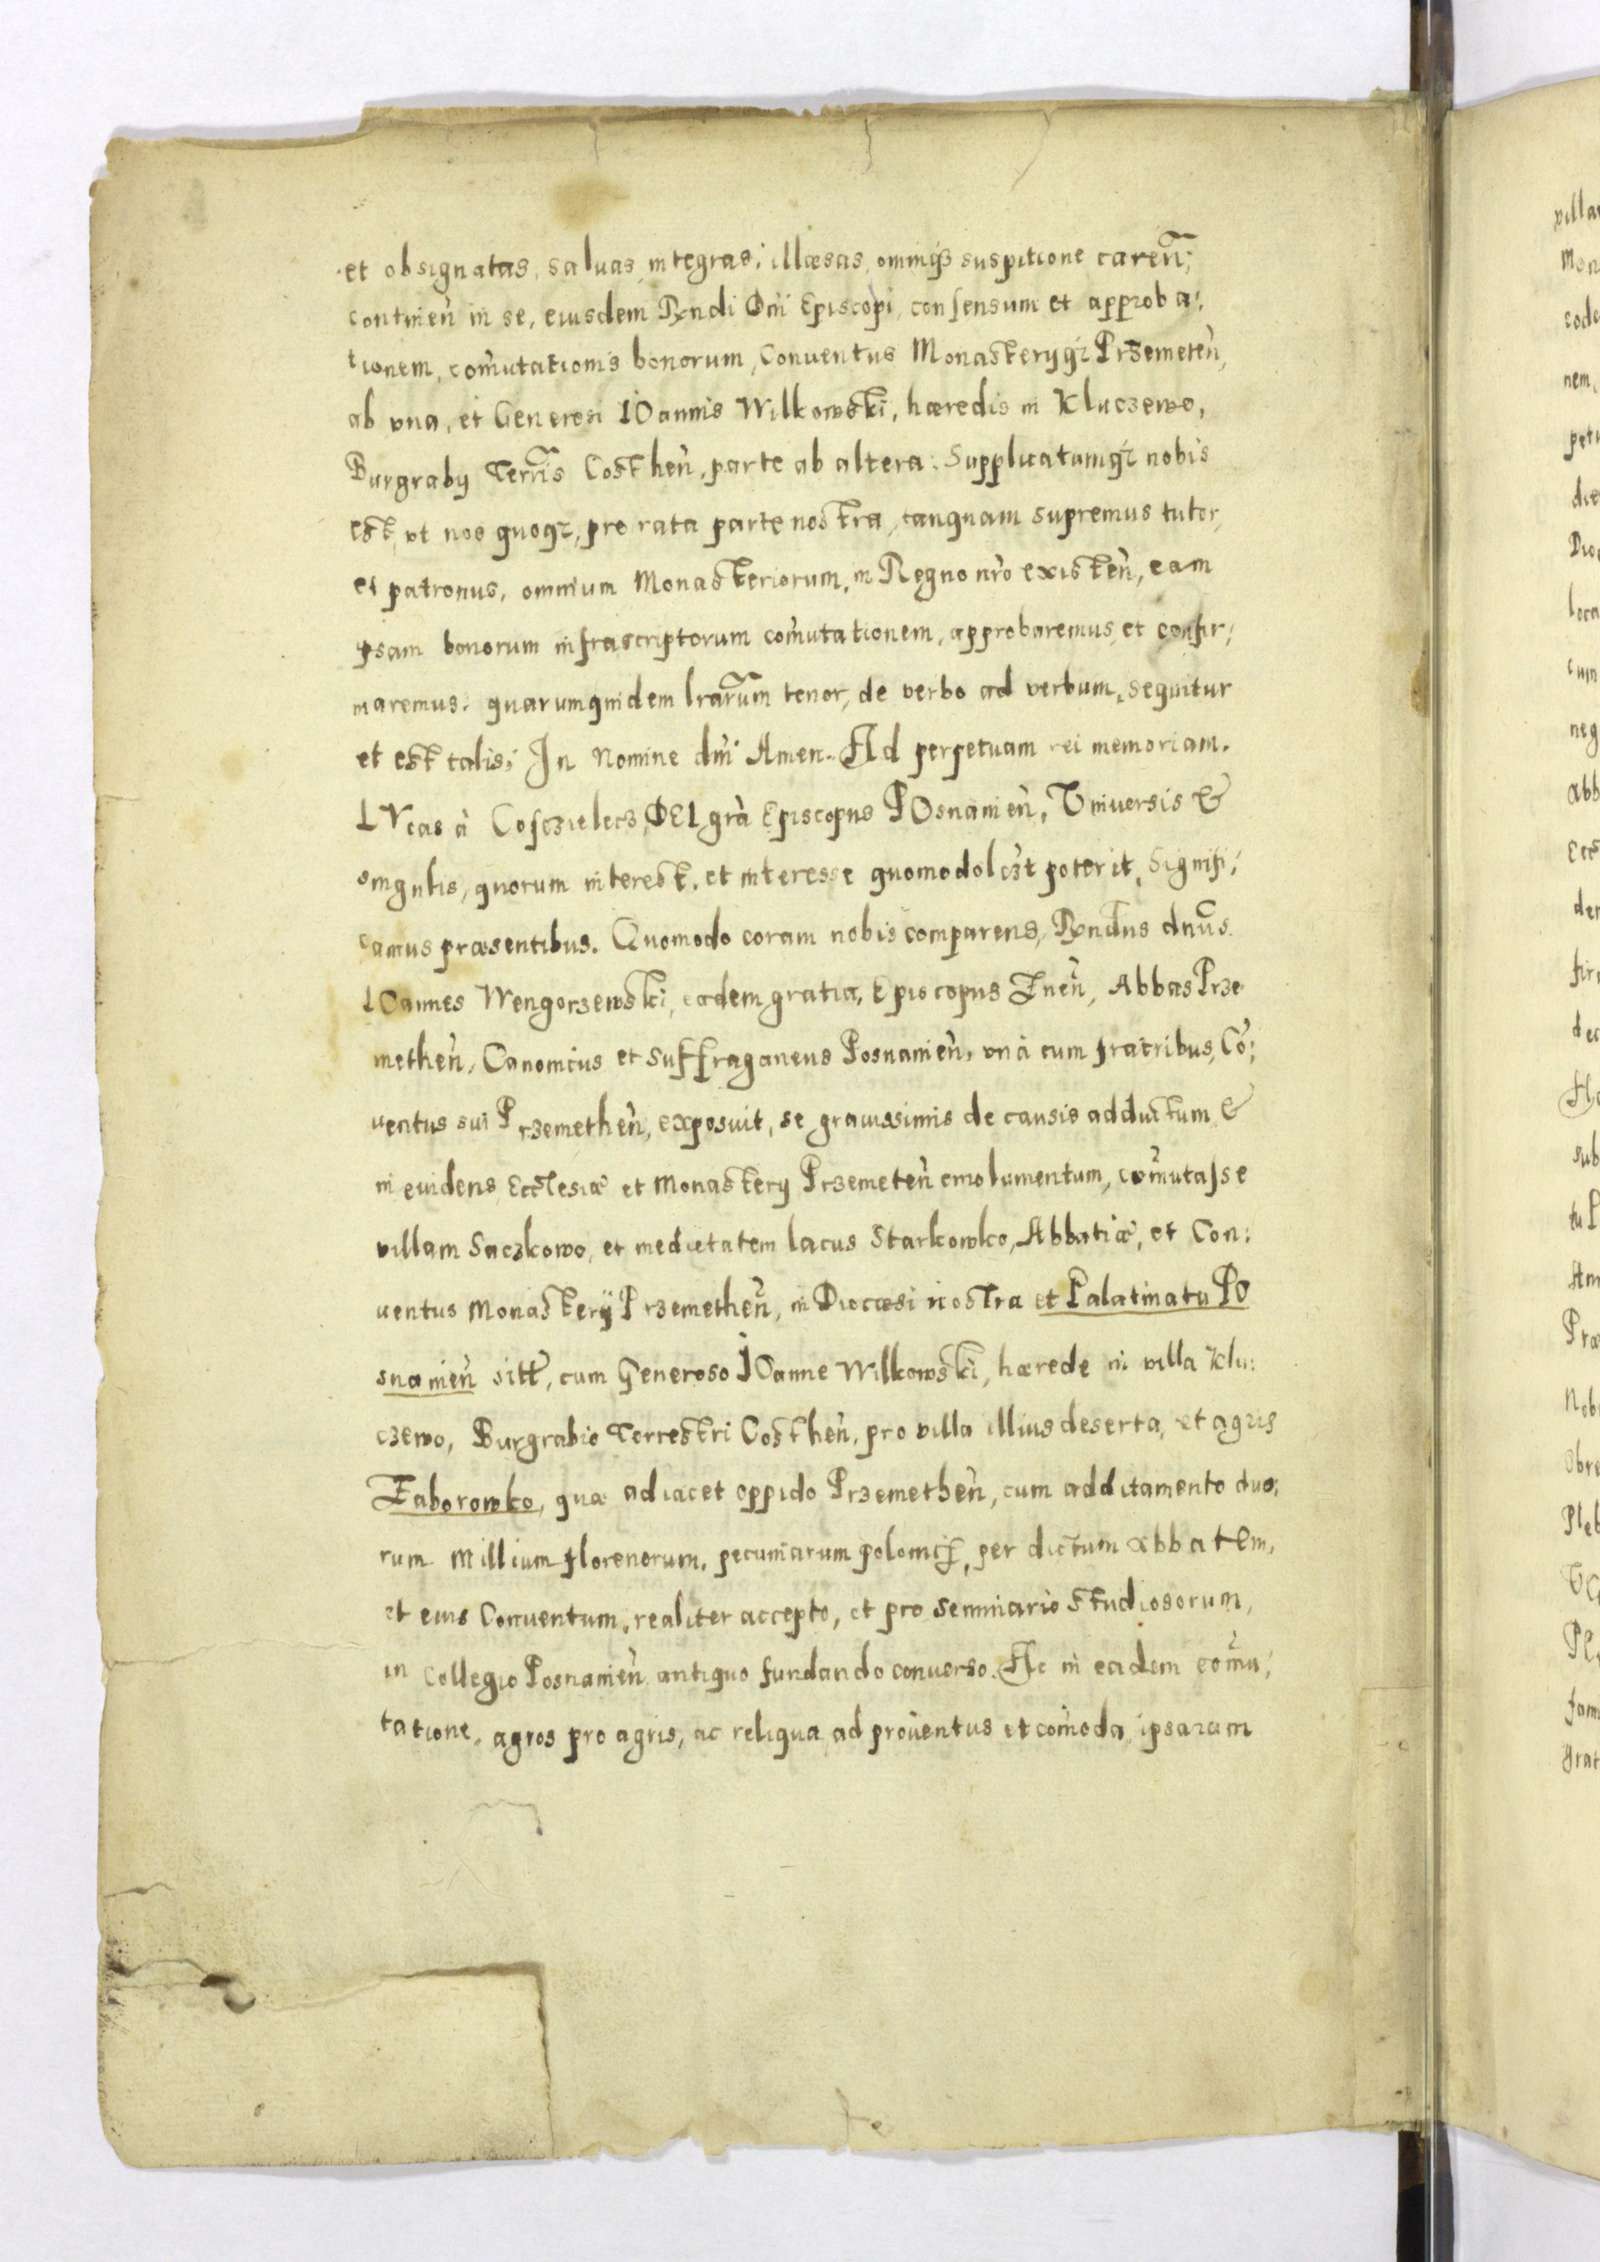 et obsignatas, saluas, integras, illæsas, omniq₃ suspitione careñ,
contineñ in se, eiusdem Rndi Dni Episcopi, consensum et approba:
tionem, com̃utationis bonorum, Conuentus Monasterijq₃ Przemeteñ,
ab vna, et Generosi IOannis Wilkowski, hæredis in Kluczewo,
Burgrabij Terris Costheñ, parte ab altera: Supplicatumq₃ nobis
est, vt nos quoq₃, pro rata parte nostra, tanquam supremus tutor,
et patronus, omnium Monasteriorum, in Regno nr̃o existeñ, eam
ipsam bonorum infrascriptorum com̃utationem, approbaremus, et confir,
maremus: quarumquidem lrarum tenor, de verbo ad verbum, sequitur
et est talis; In Nomine dnĩ Amen. Ad perpetuam rei memoriam.
LVcas à Cosczielecz, DEI grã Episcopus POsnanieñ, Vniuersis &
singulis, quorum interest, et interesse quomodolczt poterit, Signifi,
camus præsentibus. Quomodo coram nobis comparens, Rndus dnus
IOannes Wengorzewski, eadem gratia, Episcopus Eneñ, Abbas Prze
metheñ, Canonicus et Suffraganeus Posnanieñ, vnà cum fratribus, Cõ:
uentus sui Przemetheñ, exposuit, se grauissimis de causis adductum &
in euidens Ecclesiæ et Monasterij Przemeteñ emolumentum, com̃utasse
villam Saczkowo, et medietatem lacus Starkowko, Abbatiæ, et Con:
uentus Monasterij Przemetheñ, in Diocæsi nostra et Palatinatu PO
snanieñ sitt̃, cum Generoso IOanne Wilkowski, hærede in villa Klu:
czewo, Burgrabio Terrestri Costheñ, pro villa illius deserta, et agris
Zaborowko, quæ adiacet oppido Przemetheñ, cum additamento duo,
rum Millium florenorum, pecuniarum polonic̃, per dictum abbatem,
et eius Conuentum, realiter accepto, et pro seminario studiosorum,
in Collegio Posnanieñ antiquo fundando conuerso. Ac in eadem com̃u,
tatione, agros pro agris, ac reliqua ad prouentus et com̃oda ipsarum